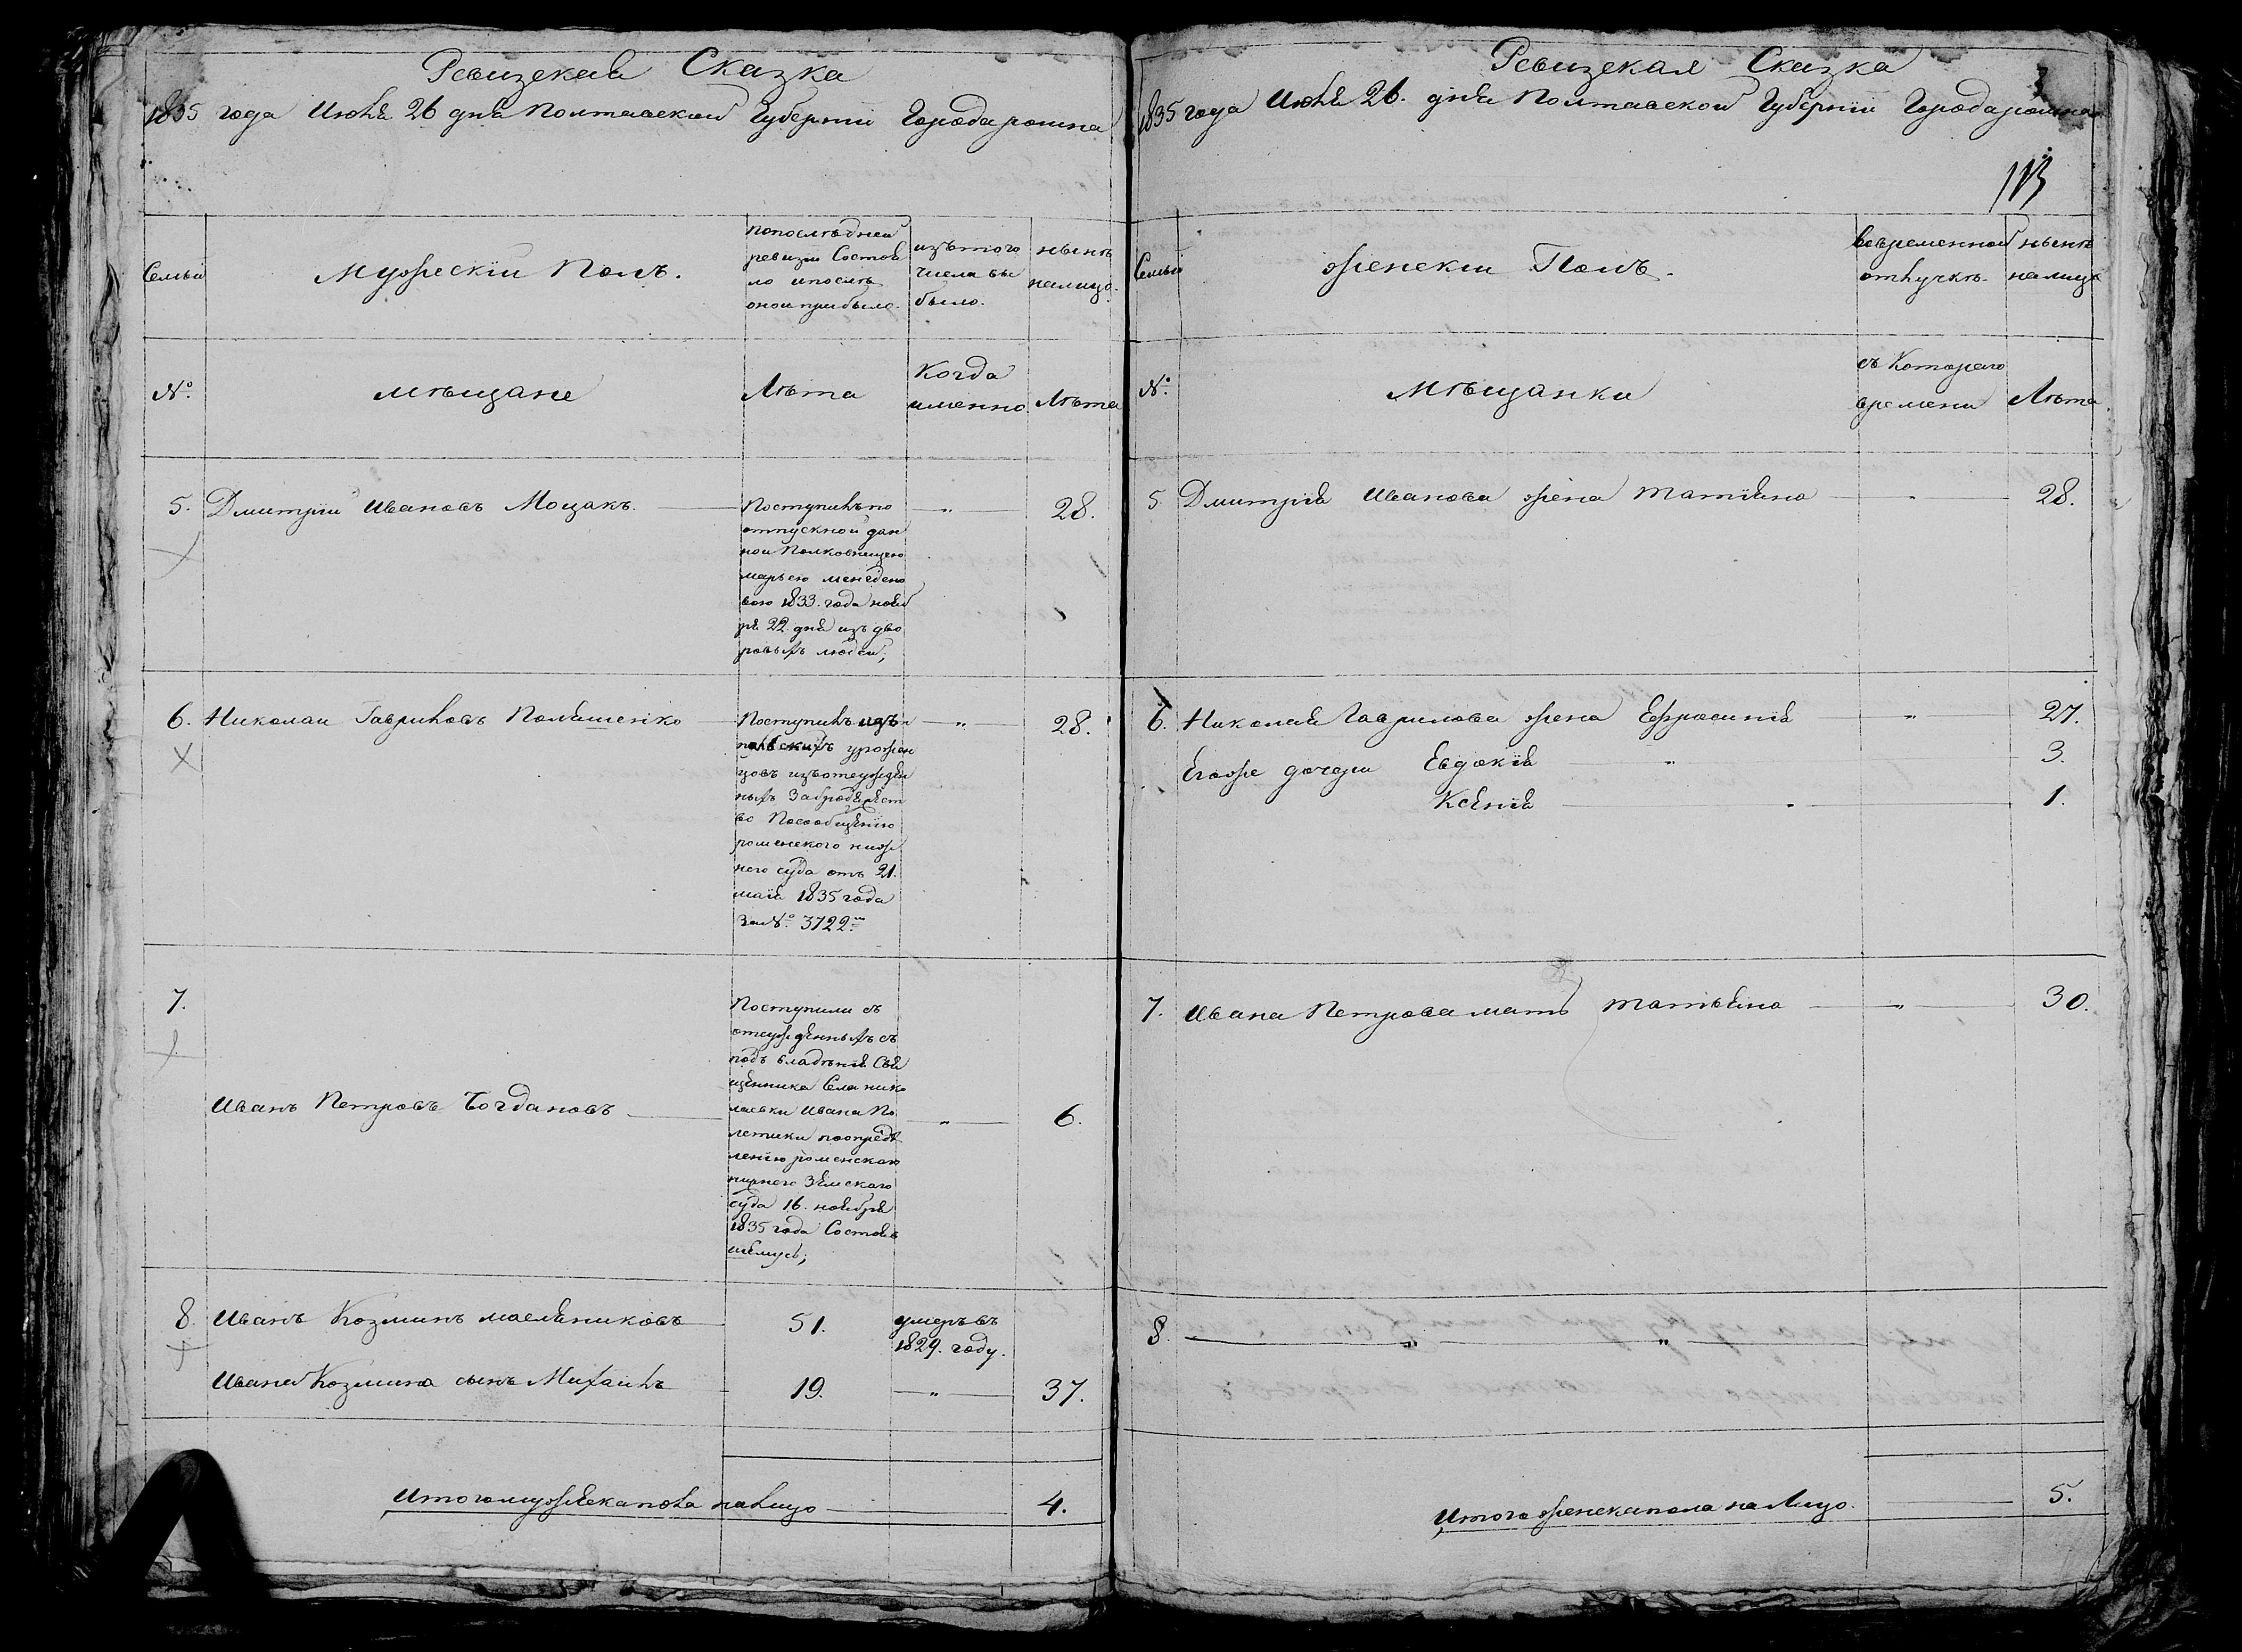 Ревизская Сказка
1835 года Июня 26 дня Полтавской Губернии Города ромна
Семьи
Мужескій Полъ.
попоследней
ревизіи Состоя
ло ипослѣ
оной прибыло.
изътого
числа вы
было.
нынѣ
налицо.
№.
мѣщане
Лѣта
Когда
именно
Лѣта
5. Дмитрій Ивановъ Моцакъ. " 28.
Поступилъ по
отпускной дан
ной Полковницею
марьею
вою 1833. года нояб
ря 22 дня изъ дво
ровыхъ людей;
6. Николай Гавриловъ Полященко " 28.
Поступилъ изъ
урожен
цовъ изъотсужден
ныхъ
во Посообщению
роменского ниж
него суда отъ 21.
маія 1835 года
За №. 3722.
7.
Поступили съ
отсужденныхъ съ
подъ владѣнія Свя
щенника Села нико
лаевки Ивана По
летики поопредѣ
ленію роменскаго
нижнего Земскаго
суда 16. ноября
1835 года Состояв
шемусь;
Иванъ Петровъ Богдановъ " 6.
8. Иванъ Козминъ маслениковъ 51. умеръ въ
1829. году.
Ивана Козмина сынъ Михаилъ 19. " 37.
Итого мужеска пола налицо 4.
Ревизская Сказка
1835 года Июня 26. дня Полтавской Губерніи Города ромна
113
Семьи
женскій Полъ.
вовременной
отлучкѣ.
нынѣ
налицо
№.
Мѣщанки
съ Котораго
времени
Лѣта
5 Дмитрія Иванова жена татіяна " 28.
6. Николая Гаврилова жена Ефросинія " 27.
Егоже дочери Евдокія " 3.
Ксенія 1.
7. Ивана Петрова мать татьяна " 30.
8. " "
Итого женска пола на Лицо. 5.